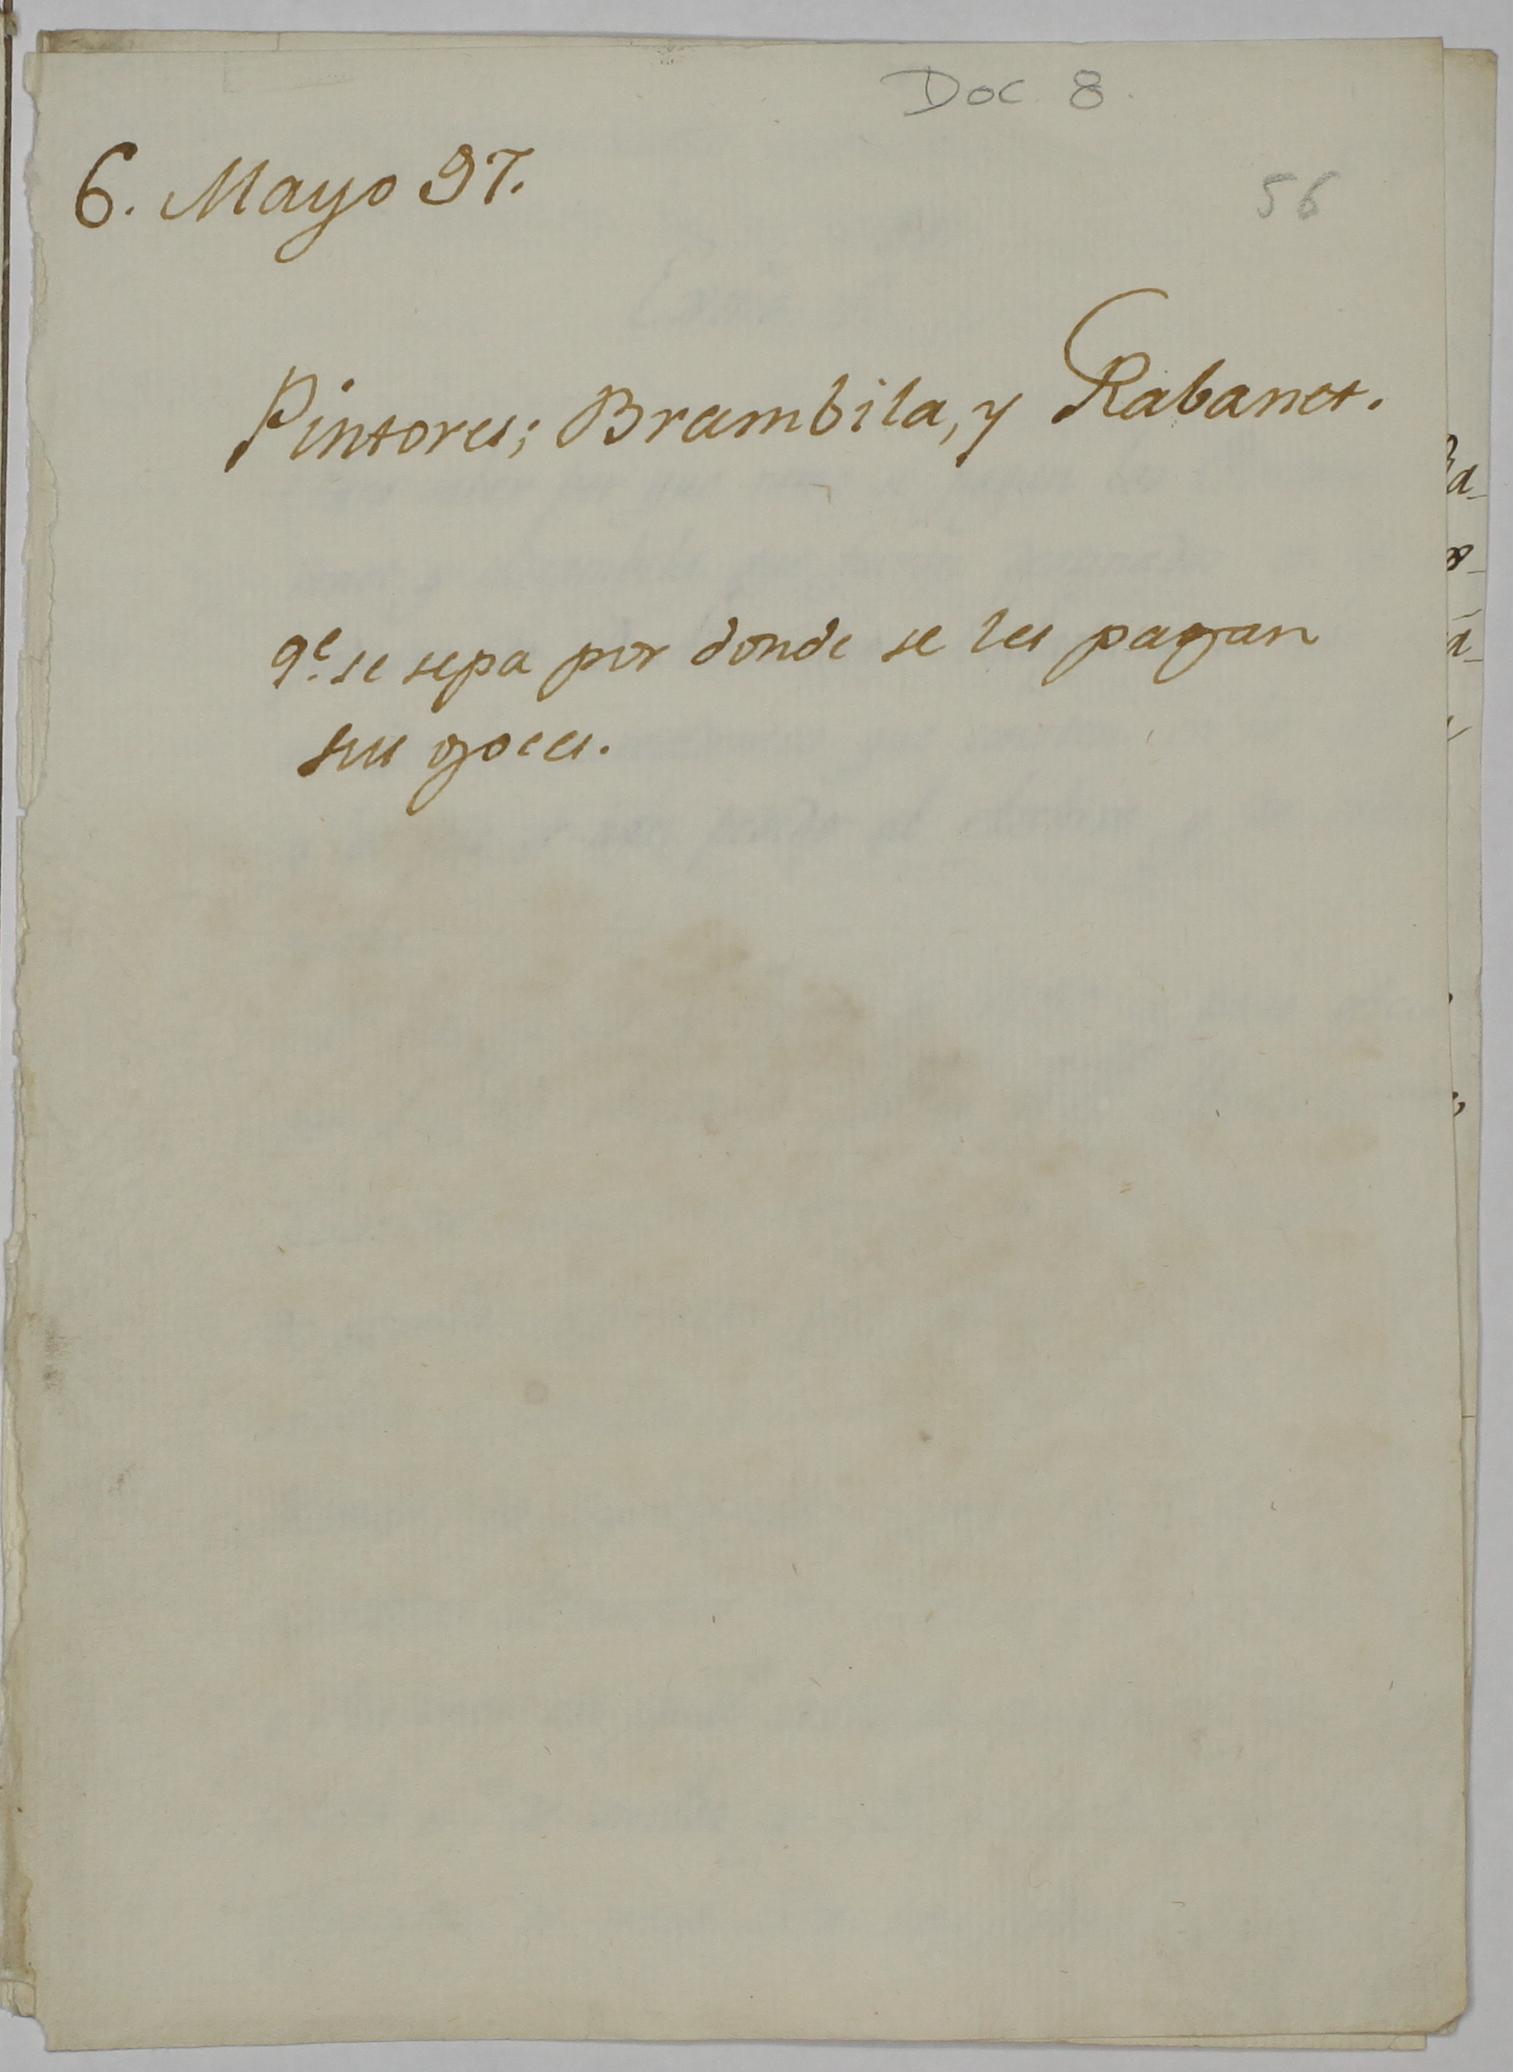 Doc. 8.
6. Mayo 97.
56
Pintores; Brambila, y Rabanet.
qe. se sepa por donde se les pagan
sus goces.